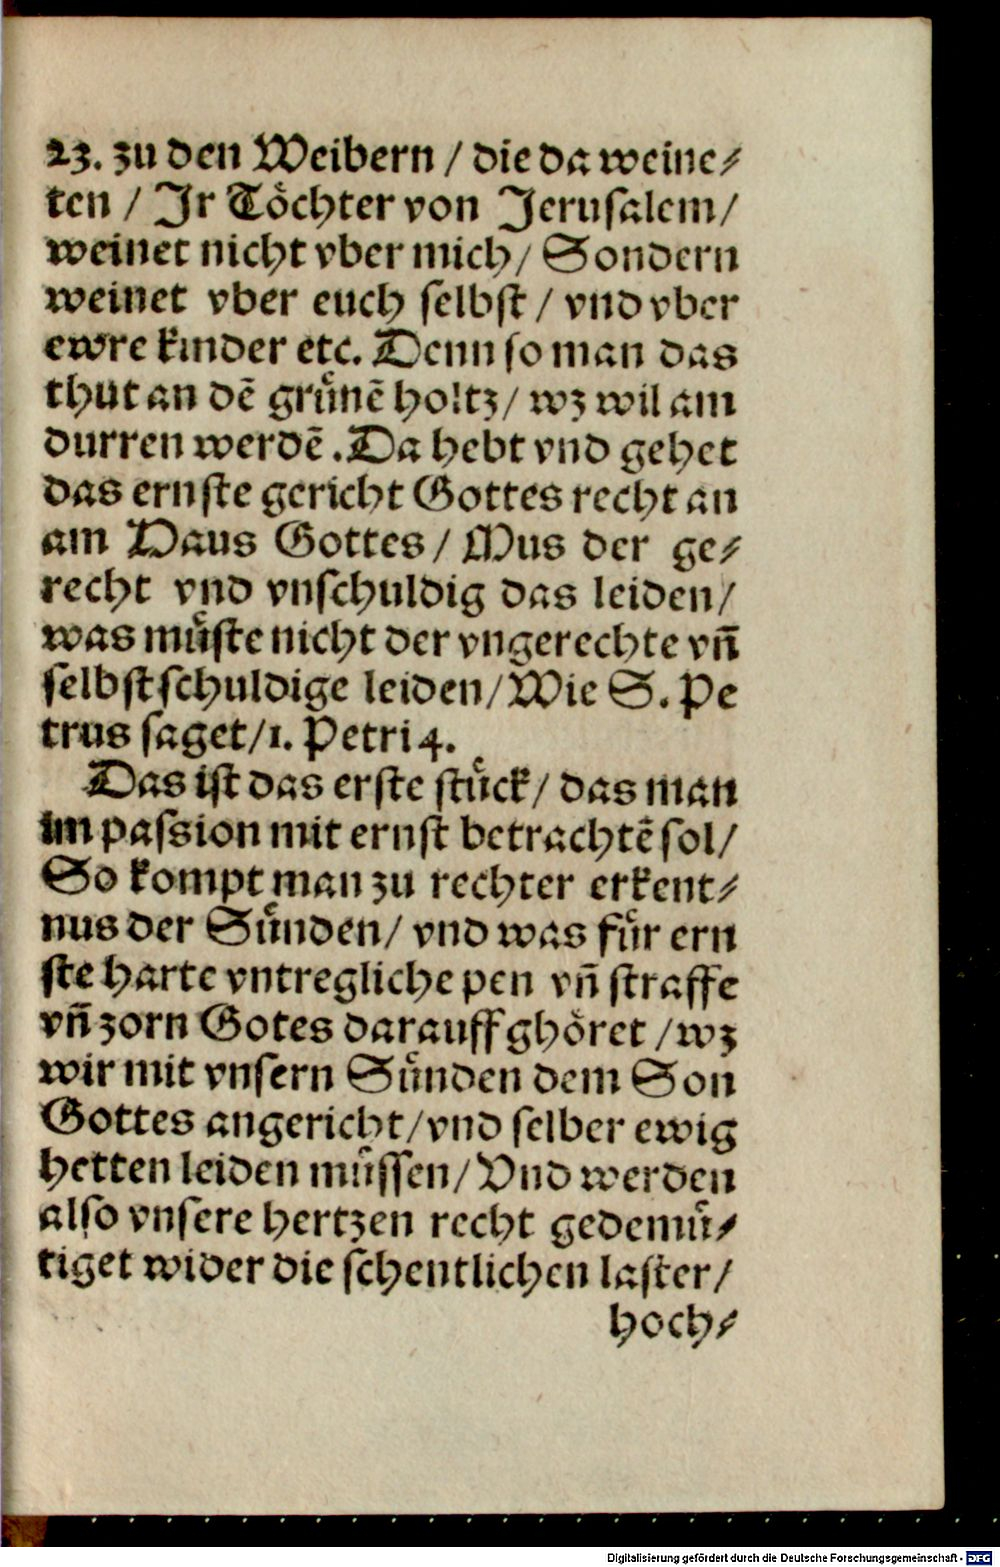 23. zu den Weibern / die da weine⸗
ten / Jr Toͤchter von Jerusalem /
weinet nicht vber mich / Sondern
weinet vber euch selbſt / vnd vber
ewre kinder etc. Denn ſo man das
thut an dẽ gruͤnẽ holtz / wz wil am
durren werdẽ. Da hebt vnd gehet
das ernſte gericht Gottes recht an
am Haus Gottes / Mus der ge⸗
recht vnd vnſchuldig das leiden /
was muͤſte nicht der vngerechte vñ
ſelbſtſchuldige leiden / Wie S. Pe
trus ſaget / 1. Petri 4.
Das iſt das erſte ſtuͤck / das man
im paſsion mit ernſt betrachtẽ ſol /
So kompt man zu rechter erkent⸗
nus der Suͤnden / vnd was fuͤr ern
ſte harte vntregliche pen vñ ſtraffe
vñ zorn Gotes darauff ghoͤret / wz
wir mit vnſern Suͤnden dem Son
Gottes angericht / vnd ſelber ewig
hetten leiden muͤſſen / Vnd werden
alſo vnſere hertzen recht gedemuͤ⸗
tiget wider die ſchentlichen laſter /
hoch⸗
Digitalisierung gefördert durch die Deutsche Forschungsgemeinschaft - DFG